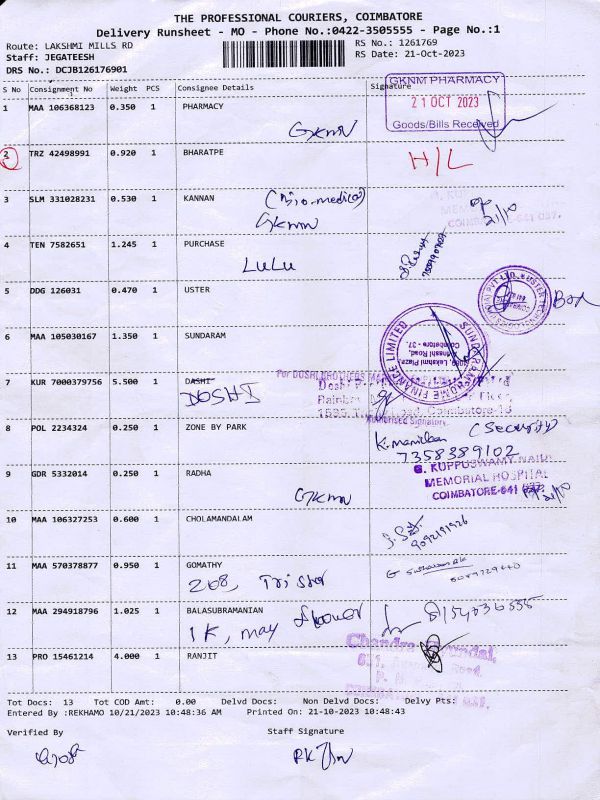 THE PROFESSIONAL COURIERS, COIMBATORE
Delivery Runsheet - MO - Phone No.:0422-3505555 - Page No.:1
Route: LAKSHMI MILLS RD
RS No.: 1261769
Staff: JEGATEESH
RS Date: 21-Oct-2023
DRS No.: DCJB126176901
S No Consignment No Weight PCS Consignee Details Signature
GKNM PHARMACY
21 OCT 2023
Goods/Bills Received
1 MAA 106368123 0.350 1 PHARMACY
GKNM
2 TRZ 42498991 0.920 1 BHARATPE H/L
3 SLM 331028231 0.530 1 KANNAN (Bio-medical)
GKNM 21/10
MEMORIAL
COIMBATORE-641 037.
4 TEN 7582651 1.245 1 PURCHASE
LULU
5 DDG 126031 0.470 1 USTER
6 MAA 105030167 1.350 1 SUNDARAM
SUNDARAM HOME FINANCE LIMITED
Coimbatore - 37.
7 KUR 7000379756 5.500 1 DASHI
DOSHI
For DOSHI BROTHERS
Authorised Signatory
8 POL 2234324 0.250 1 ZONE BY PARK
(Security)
7358389102
9 GDR 5332014 0.250 1 RADHA
GKNM
G. KUPPUSWAMY NAIDU
MEMORIAL HOSPITAL
COIMBATORE-641 037.
10 MAA 106327253 0.600 1 CHOLAMANDALAM
9092191926
11 MAA 570378877 0.950 1 GOMATHY
268, Tristar
12 MAA 294918796 1.025 1 BALASUBRAMANIAN
1K, may flower
13 PRO 15461214 4.000 1 RANJIT
Tot Docs: 13 Tot COD Amt: 0.00 Delvd Docs: Non Delvd Docs: Delvy Pts:
Entered By :REKHAMO 10/21/2023 10:48:36 AM Printed On: 21-10-2023 10:48:43
Verified By Staff Signature